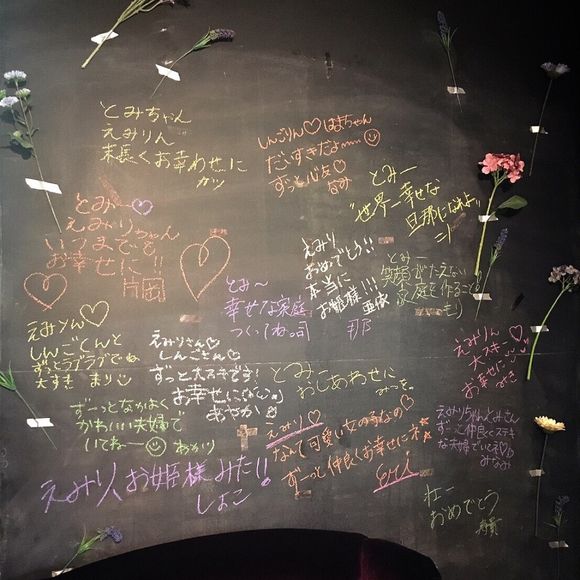 とみちゃん
えみりん
末長くお幸わせに
しんごりん♡はよちゃん
だいすきだよ〰〰☺
ずっと心友♡
なみ
とみー
"世界一幸せな
旦那になれよ"
とみー♡
えみりちゃん
いつまでも
お幸せに!!
片岡
えみり
おめでとう!!
本当に
お姫様!!!
亜依
とみー
笑顔がたえない
家庭を作ること!
とみ〜
幸せな家庭
つくってね。司
那
えみりん♡
しんごくんと
ずっとラブラブでね
大すき まり
えみりさん♡
しんごさん
ずっと大スキです!
お幸せに
あやか
とみー
おしあわせに
みっき。
えみりん♡
大スキー
お幸せに
みき
ずーっとなかよく
かわいい夫婦で
いてねー☺ あかり
えみり♡
なんて可愛い女の子なの♡
ずーっと仲良くお幸せにネ☆
Eri
えみりちゃんとみさん
ずーっと仲良くステキ
な夫婦でいてネ♡
みなみ
えみり、お姫様みた!!
しょこ
おめでとう